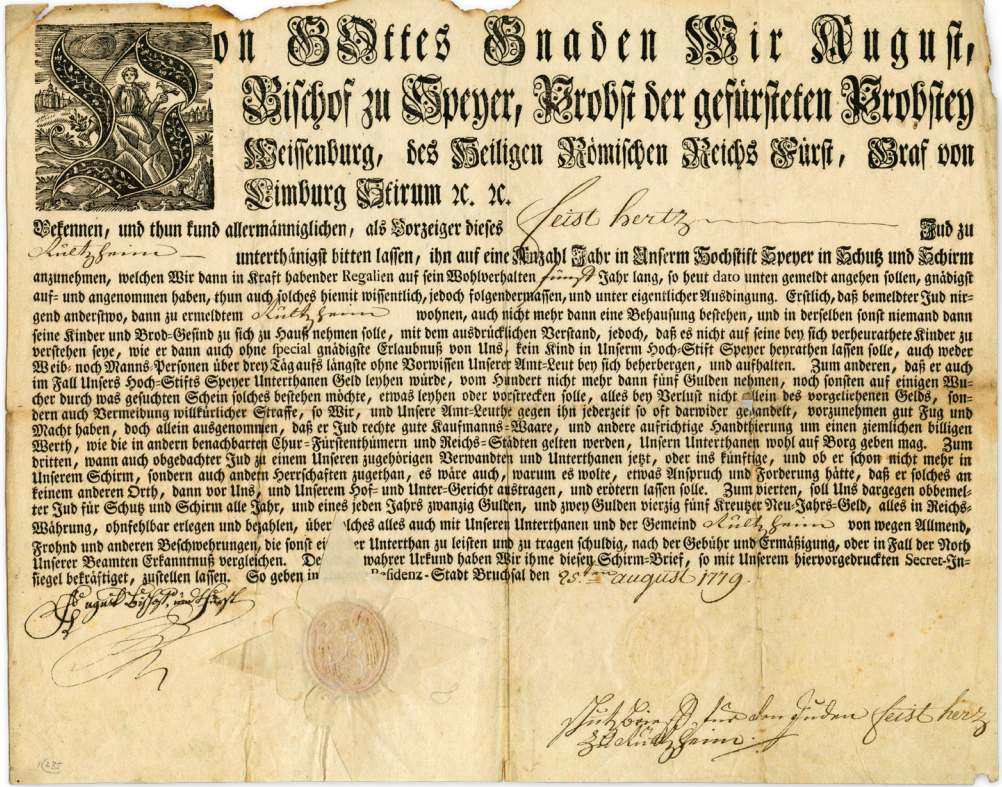 Von GOttes Gnaden Wir August,
Bischof zu Speyer, Probst der gefürsteten Probstey
Weissenburg, des Heiligen Römischen Reichs Fürst, Graf von
Limburg Stirum ꝛc. ꝛc.
Bekennen, und thun kund allermänniglichen, als Vorzeiger dieses feist hertz Jud zu
Rültzheim unterthänigst bitten lassen, ihn auf eine Anzahl Jahr in Unserm Hochstift Speyer in Schutz und Schirm
anzunehmen, welchen Wir dann in Kraft habender Regalien auf sein Wohlverhalten fünf Jahr lang, so heut dato unten gemeldt angehen sollen, gnädigst
auf- und angenommen haben, thun auch solches hiemit wissentlich, jedoch folgendermassen, und unter eigentlicher Ausdingung. Erstlich, daß bemeldter Jud nir-
gend anderstwo, dann zu ermeldtem Rültzheim wohnen, auch nicht mehr dann eine Behausung bestehen, und in derselben sonst niemand dann
seine Kinder und Brod-Gesind zu sich zu Hauß nehmen solle, mit dem ausdrücklichen Verstand, jedoch, daß es nicht auf seine bey sich verheurathete Kinder zu
verstehen seye, wie er dann auch ohne special gnädigste Erlaubnuß von Uns, kein Kind in Unserm Hoch-Stift Speyer heyrathen lassen solle, auch weder
Weib- noch Manns-Personen über drey Tag aufs längste ohne Vorwissen Unserer Amt-Leut bey sich beherbergen, und aufhalten. Zum anderen, daß er auch
im Fall Unsers Hoch-Stifts Speyer Unterthanen Geld leyhen würde, vom Hundert nicht mehr dann fünf Gulden nehmen, noch sonsten auf einigen Wu-
cher durch was gesuchten Schein solches bestehen möchte, etwas leyhen oder vorstrecken solle, alles bey Verlust nicht allein des vorgeliehenen Gelds, son-
dern auch Vermeidung willkürlicher Straffe, so Wir, und Unsere Amt-Leuthe gegen ihn jederzeit so oft darwider gehandelt, vorzunehmen gut Fug und
Macht haben, doch allein ausgenommen, daß er Jud rechte gute Kaufmanns-Waare, und andere aufrichtige Handthierung um einen ziemlichen billigen
Werth, wie die in andern benachbarten Chur-Fürstenthümern und Reichs-Städten gelten werden, Unsern Unterthanen wohl auf Borg geben mag. Zum
dritten, wann auch obgedachter Jud zu einem Unseren zugehörigen Verwandten und Unterthanen jetzt, oder ins künftige, und ob er schon nicht mehr in
Unserem Schirm, sondern auch andern Herrschaften zugethan, es wäre auch, warum es wolte, etwas Anspruch und Forderung hätte, daß er solches an
keinem anderen Orth, dann vor Uns, und Unserem Hof- und Unter-Gericht austragen, und erötern lassen solle. Zum vierten, soll Uns dargegen obbemel-
ter Jud für Schutz und Schirm alle Jahr, und eines jeden Jahrs zwanzig Gulden, und zwey Gulden vierzig fünf Kreutzer Neu-Jahrs-Geld, alles in Reichs-
Währung, ohnfehlbar erlegen und bezahlen, über lches alles auch mit Unseren Unterthanen und der Gemeind Rültzheim von wegen Allmend,
Frohnd und anderen Beschwehrungen, die sonst ei er Unterthan zu leisten und zu tragen schuldig, nach der Gebühr und Ermäßigung, oder in Fall der Noth
Unserer Beamten Erkanntnuß vergleichen. De wahrer Urkund haben Wir ihme diesen Schirm-Brief, so mit Unserem hiervorgedruckten Secret-In-
siegel bekräftiget, zustellen lassen. So geben in Residenz-Stadt Bruchsal den 25ten august 1779.
August Bischof und Fürst
Schutz Brieff für den Juden feist herz
zu Rültzheim.